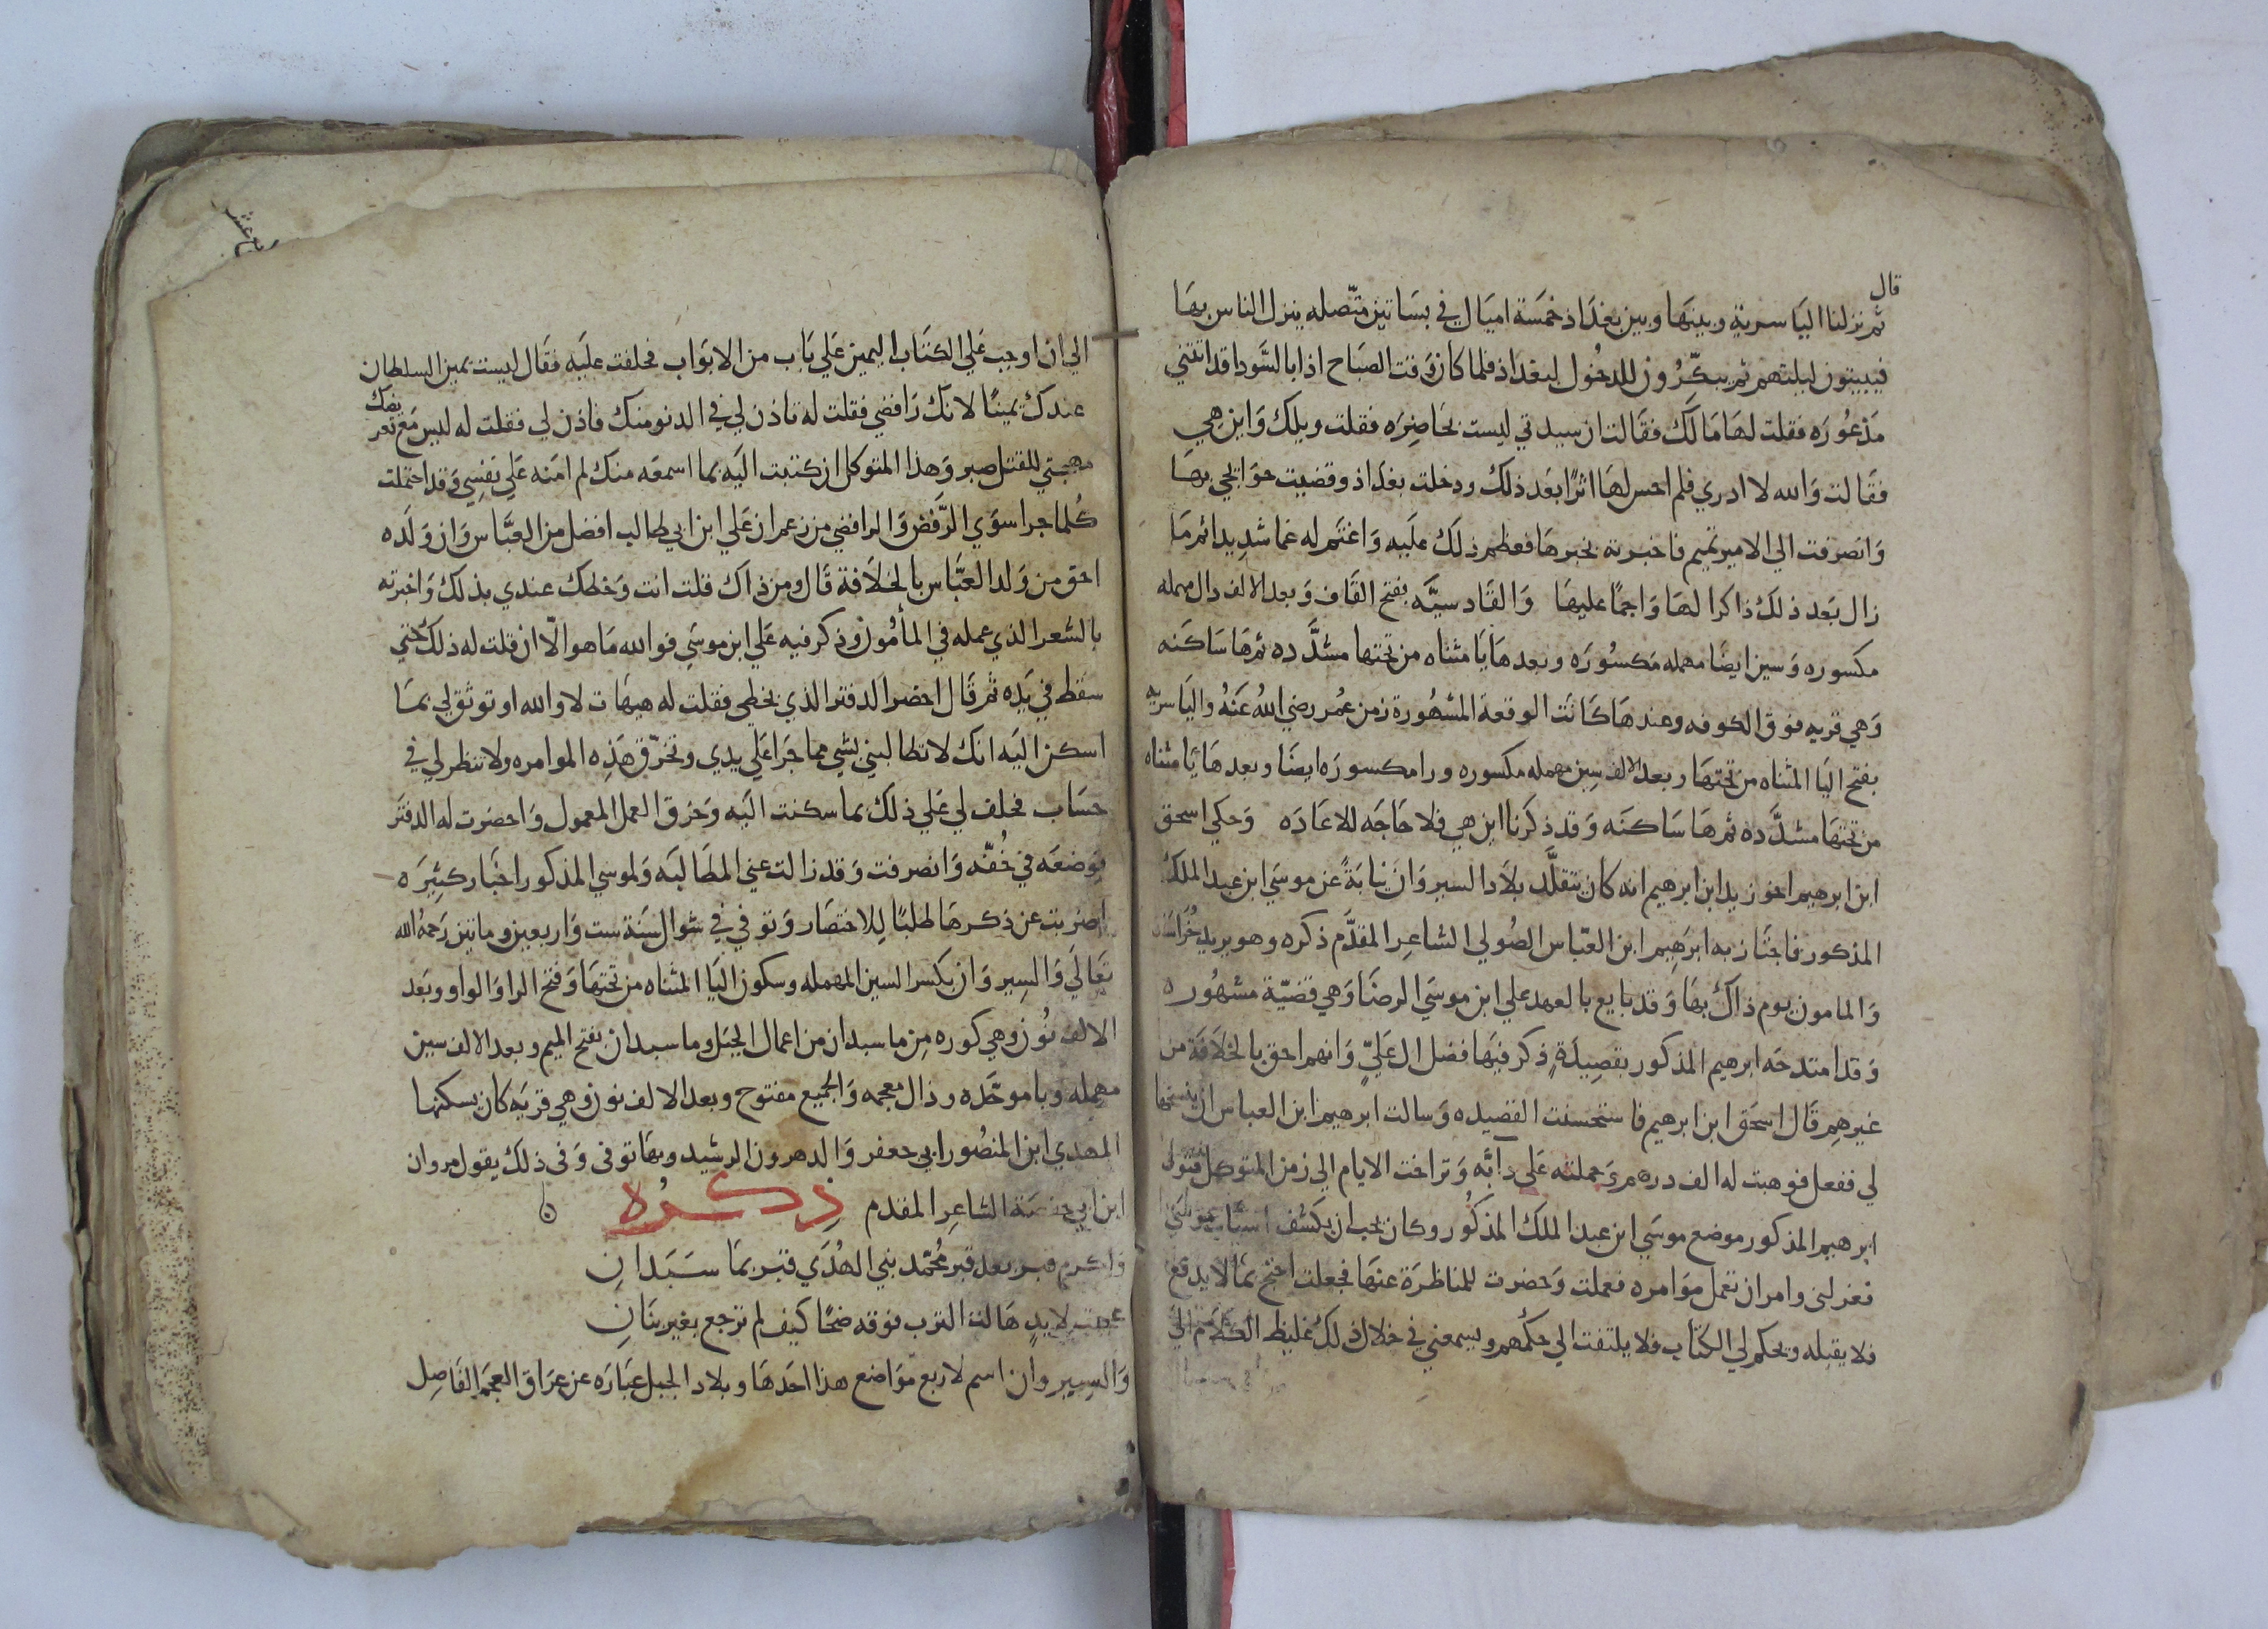 قال
ثم نزلنا الياسرية وبينها وبين بغداذ خمسة اميال في بساتين متصله ينزل الناس بها
فيبيتون ليلتهم ثم يبكرون للدخول لبغداذ فلما كان وقت الصباح اذا بالسودا قد اتتني
مذعوره فقلت لها مالك فقالت ان سيدتي ليست بحاضره فقلت ويلك واين هي
فقالت والله لا ادري فلم احس لها اثرا بعد ذلك ودخلت بغداذ وقضيت حوايجي بها
وانصرفت الي الامير تميم فاخبرته بخبرها فعظم ذلك عليه واغتم له غما شديدا ثم ما
زال بعد ذلك ذاكرا لها واجما عليها والقادسيه بفتح القاف وبعد الالف دال مهمله
مكسوره وسين ايضا مهمله مكسوره وبعدها يا مثناه من تحتها مشدده ثم ها ساكنه
وهي قريه فوق الكوفه وعندها كانت الوقعة المشهورة زمن عمر رضي الله عنه والياسريه
بفتح اليا المثناه من تحتها وبعد الالف سين مهمله مكسوره ورا مكسوره ايضا وبعدها يا مثناه
من تحتها مشدده ثم ها ساكنه وقد ذكرنا اين هي فلا حاجه للاعاده وحكي اسحق
ابن ابرهيم اخو زيد ابن ابرهيم انه كان يتقلد بلاد السيروان نيابة عن موسي ابن عبد الملك
المذكور فاجتاز به ابرهيم ابن العباس الصولي الشاعر المقدم ذكره وهو يريد خراسان
والمامون يوم ذاك بها وقد بايع بالعهد علي ابن موسي الرضا وهي قضية مشهوره
وقد امتدحه ابرهيم المذكور بقصيدة ذكر فيها فضل ال علي وانهم احق بالخلافة من
غيرهم قال اسحق ابن ابرهيم فاستحسنت القصيده وسالت ابرهيم ابن العباس ان ينسخها
لي ففعل فوهبت له الف درهم وحملته علي دابه وتراخت الايام الي زمن المتوكل فتولي
ابرهيم المذكور موضع موسي ابن عبد الملك المذكور وكان يحب ان يكشف اسباب موسي
فعزلني وامر ان تعمل موامره فعملت وحضرت للمناظرة عنها فجعلت احتج بما لا يدفع
فلا يقبله ويحكم لي الكتاب فلا يلتفت الي حكمهم ويسمعني في خلال ذلك غليظ الكلام
الي ان اوجب علي الكتاب اليمين علي باب من الابواب فحلفت عليه فقال ليست يمين السلطان
عندك يمينا لانك رافضي فقلت له تاذن لي في الدنو منك فاذن لي فقلت له ليس مع تعر
يضك
مهجتي للقتل صبر وهذا المتوكل ان كتبت اليه بما اسمعه منك لم امنه علي نفسي وقد احتملت
كلما جرا سوي الرفض والرافضي من زعم ان علي ابن ابي طالب افضل من العباس وان ولده
احق من ولد العباس بالخلافة قال ومن ذاك قلت انت وخطك عندي بذلك واخبرته
بالشعر الذي عمله في المأمون وذكر فيه علي ابن موسي فوالله ما هو الا ان قلت له ذلك حتي
سقط في يده ثم قال احضر الدفتر الذي بخطي فقلت له هيهات لا والله او توثق لي بما
اسكن اليه انك لا تطالبني بشي مما جرا علي يدي وتخرق هذه الموامره ولا تنظر لي في
حساب فحلف لي علي ذلك بما سكنت اليه وخرق العمل المعمول واحضرت له الدفتر
فوضعه في خفه وانصرفت وقد زالت عني المطالبه ولموسي المذكور اخبار كثيره
اضربت عن ذكرها طلبا للاختصار وتوفي في شوال سنة ست واربعين وماتين رحمه الله
تعالي والسيروان بكسر السين المهمله وسكون اليا المثناه من تحتها وفتح الرا والواو وبعد
الالف نون وهي كوره من ماسبدان من اعمال الجبل وماسبدان بفتح الميم وبعد الالف سين
مهمله وبا موحده وذال معجمه والجميع مفتوح وبعد الالف نون وهي قريه كان يسكنها
المهدي ابن المنصور ابي جعفر والد هرون الرشيد وبها توفى وفى ذلك يقول مروان
ابن ابي حفصة الشاعر المقدم ذكره
واكرم قبر بعد قبر محمد نبي الهدي قبر بماسبدان
عجبت لايد هالت الترب فوقه ضحا كيف لم ترجع بغير بنان
والسيروان اسم لاربع مواضع هذا احدها وبلاد الجبل عباره عن عراق العجم الفاصل